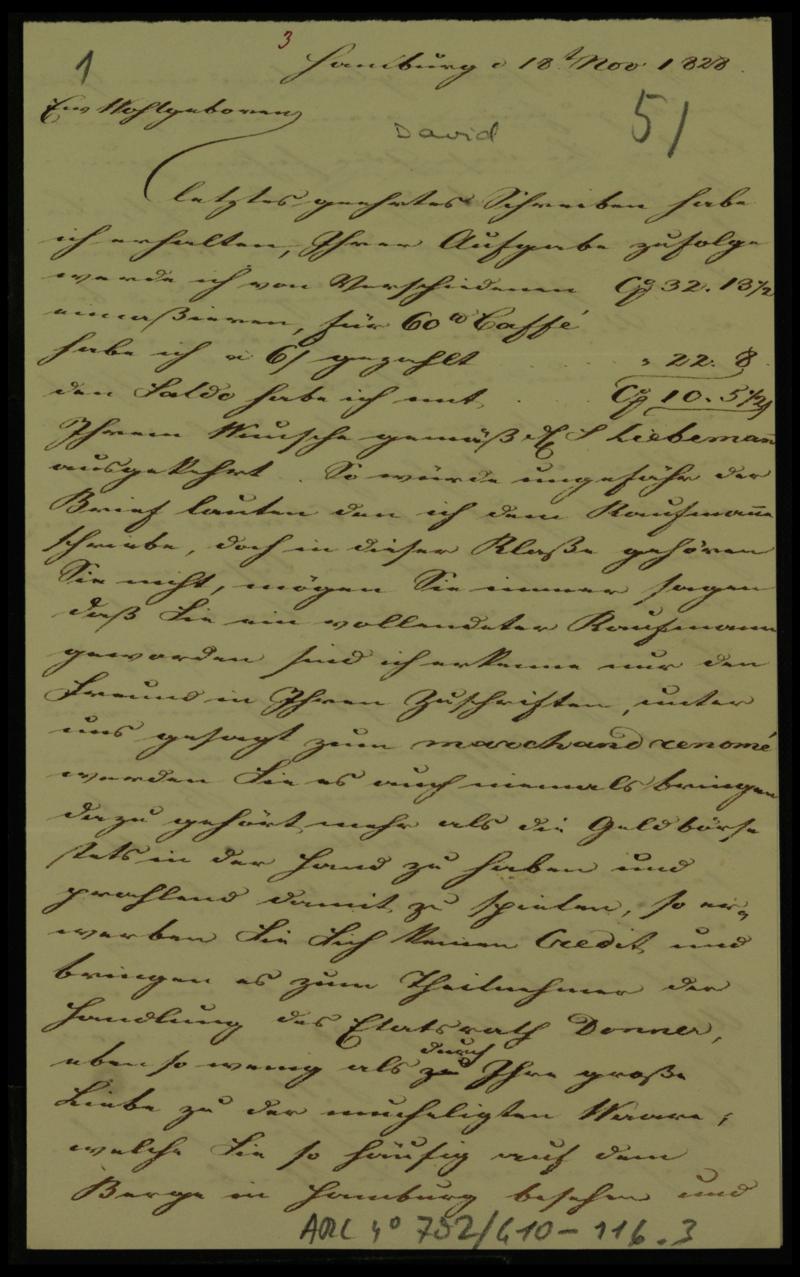 3
1
Hamburg d 18t Nov 1828.
Ew Wohlgeboren
David
51
letztes geehrtes Schreiben habe
ich erhalten, Ihrer Aufgabe zufolge
werde ich von Verschiedenen C₰ 32. 13½
eincaßieren, für 60 Caffé
habe ich a 6/ gezahlt " 22. 8
den Saldo habe ich mit C₰ 10. 5½
Ihrem Wunsche gemäß S Liebemann
ausgekehrt. So würde ungefähr der
Brief lauten den ich dem Kaufmanne
schriebe, doch in dieser Klaße gehören
Sie nicht, mögen Sie immer sagen
daß Sie ein vollendeter Kaufmann
geworden sind ich erkenne nur den
Freund in Ihren Zuschriften, unter
uns gesagt zum marchand renomé
werden Sie es auch niemals bringen
dazu gehört mehr als die Geldbörse
stets in der Hand zu haben und
prahlend damit zu spielen, so er-
werben Sie Sich keinen Credit und
bringen es zum Theilnehmer der
Handlung des Etatsrath Donner,
eben so wenig als durch Ihre große
Liebe zu der Waare,
welche Sie so häufig auf dem
Berge in Hamburg besehen und
ARC 4° 792/G10-116.3